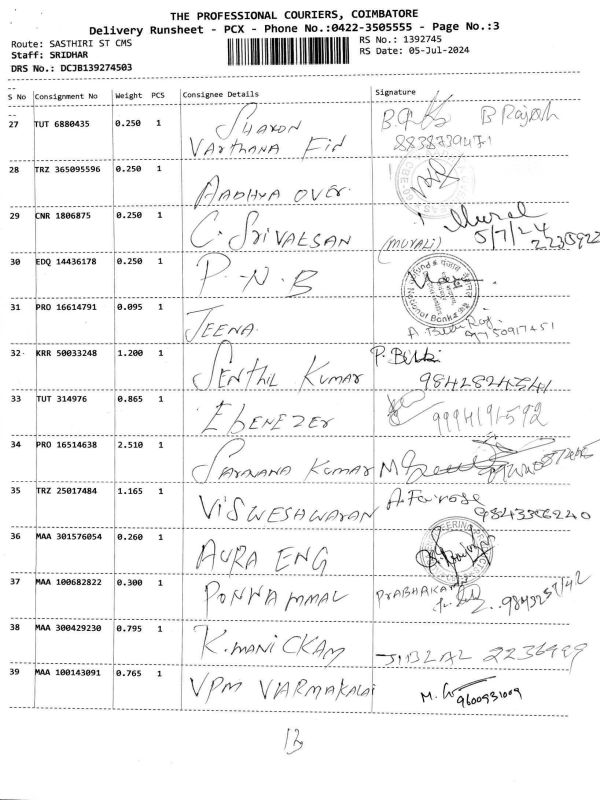 THE PROFESSIONAL COURIERS, COIMBATORE
Delivery Runsheet - PCX - Phone No.:0422-3505555 - Page No.:3
Route: SASTHIRI ST CMS
RS No.: 1392745
Staff: SRIDHAR
RS Date: 05-Jul-2024
DRS No.: DCJB139274503
S No Consignment No Weight PCS Consignee Details Signature
27 TUT 6880435 0.250 1 SHARON B Rajesh
VARTHANA Fin 8838739471
28 TRZ 365095596 0.250 1
AADHYA OVER.
29 CNR 1806875 0.250 1 Mural
C. SRIVATSAN (MURALI) 5/7/24
30 EDQ 14436178 0.250 1 P.N.B
National Bank
31 PRO 16614791 0.095 1
JEENA.
32 KRR 50033248 1.200 1
SENTHIL KUMAR
33 TUT 314976 0.865 1
EBENEZER 9994191592
34 PRO 16514638 2.510 1
SARAVANA KUMAR
35 TRZ 25017484 1.165 1
VISWESHWARAN 9843306240
36 MAA 301576054 0.260 1
AURA ENG
37 MAA 100682822 0.300 1
PONNAMMAL PRABHAKARAN
38 MAA 300429230 0.795 1
K.MANICKAM 2236499
39 MAA 100143091 0.765 1
VPM VARMAKALAI 9600931009
13